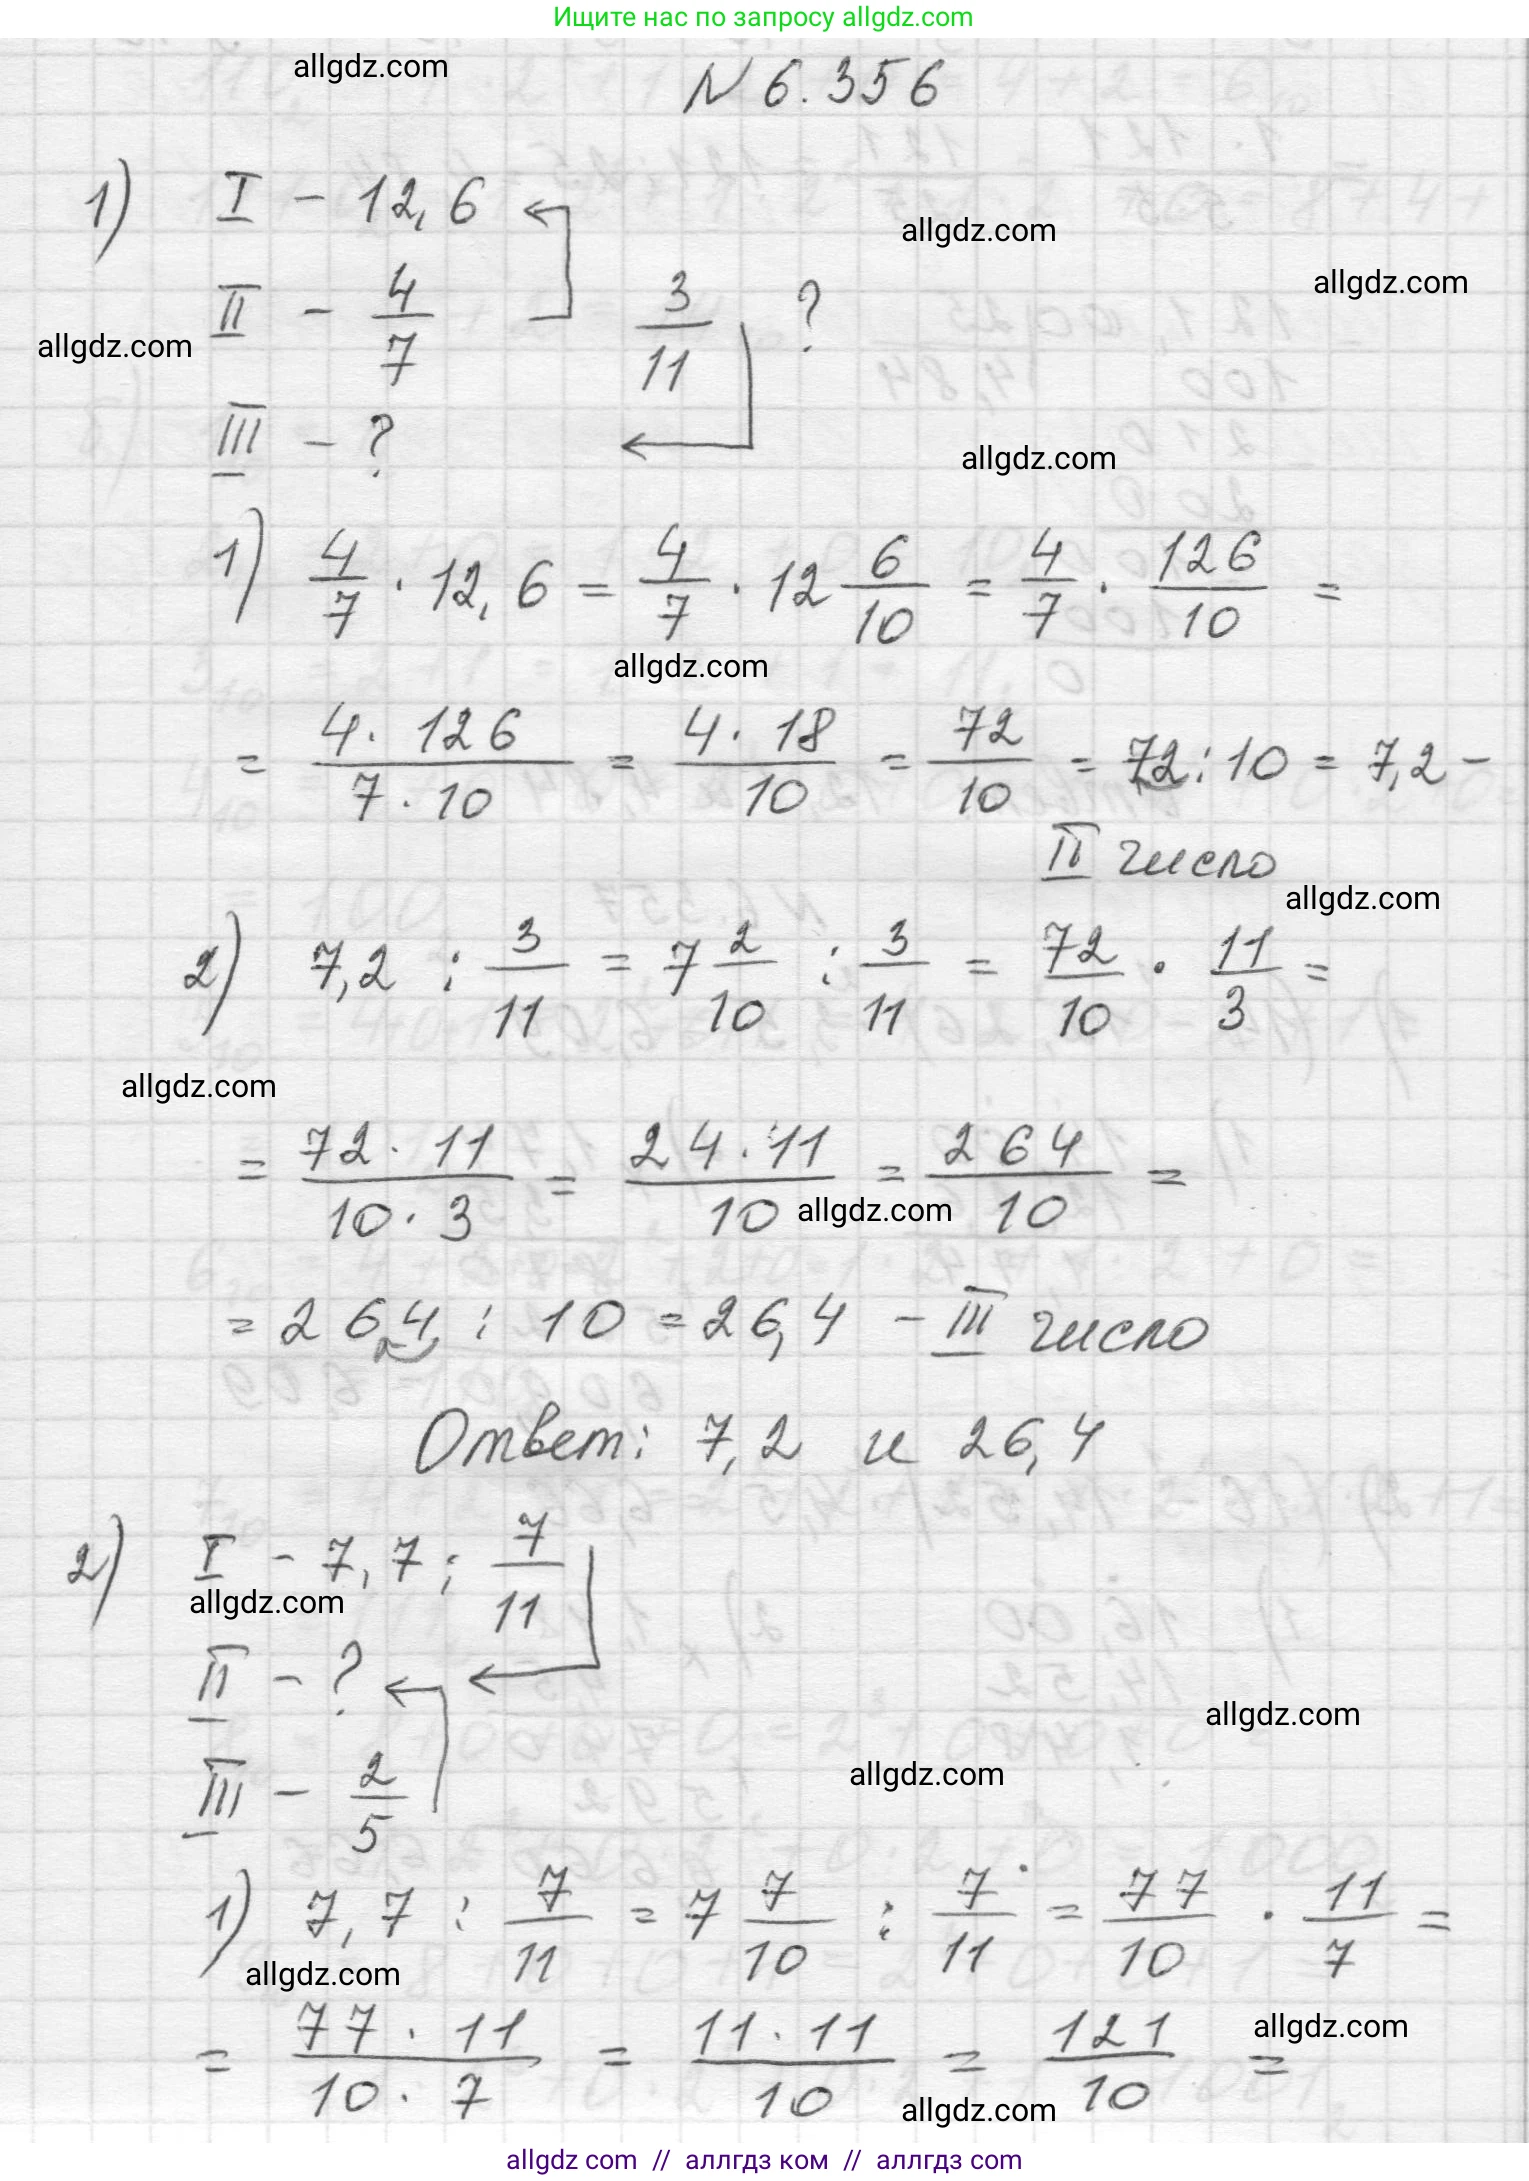 Ищите нас по запросу allgdz.com
allgdz.com
N 6.356
1) I - 12,6
allgdz.com
allgdz.com
II - 4/7 3/11 ?
allgdz.com
III - ?
allgdz.com
1) 4/7 · 12,6 = 4/7 · 12 6/10 = 4/7 · 126/10 =
allgdz.com
= 4 · 126 / 7 · 10 = 4 · 18 / 10 = 72/10 = 72 : 10 = 7,2 -
II число
allgdz.com
2) 7,2 : 3/11 = 7 2/10 : 3/11 = 72/10 · 11/3 =
allgdz.com
= 72 · 11 / 10 · 3 = 24 · 11 / 10 = 264/10 =
allgdz.com
= 264 : 10 = 26,4 - III число
Ответ: 7,2 и 26,4
2) I - 7,7 ; 7/11
allgdz.com
II - ?
allgdz.com
III - 2/5
allgdz.com
1) 7,7 : 7/11 = 7 7/10 : 7/11 = 77/10 · 11/7 =
allgdz.com
= 77 · 11 / 10 · 7 = 11 · 11 / 10 = 121/10 =
allgdz.com
allgdz.com
allgdz.com // аллгдз ком // аллгдз com